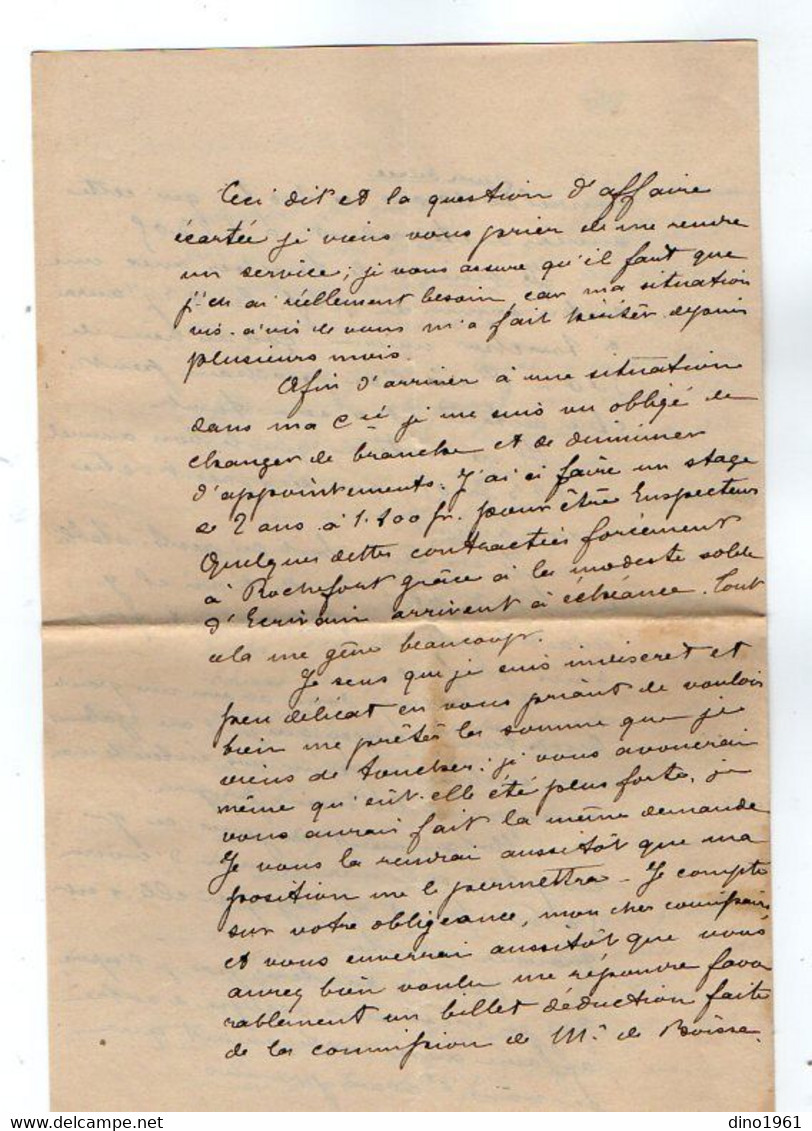 Ceci dit et la question d'affaire
écartée je viens vous prier de me rendre
un service; je vous assure qu'il faut que
j'en ai réellement besoin car ma situation
vis-à-vis de vous m'a fait hésiter depuis
plusieurs mois.
Afin d'arriver à une situation
dans ma Cie je me suis vu obligé de
changer de branche et de diminuer
d'appointements. J'ai à faire un stage
de 2 ans à 1.800 fr. pour être Inspecteur
Quelques dettes contractées forcément
à Rochefort grâce à la modeste solde
d'Ecrivain arrivent à échéance. Tout
cela me gêne beaucoup.
Je sens que je suis indiscret et
peu délicat en vous priant de vouloir
bien me prêter la somme que je
viens de toucher: je vous avouerai
même qu'eût-elle été plus forte, je
vous aurais fait la même demande
Je vous la rendrai aussitôt que ma
position me le permettra - Je compte
sur votre obligeance, mon cher
et vous enverrai aussitôt que vous
aurez bien voulu me répondre favo
rablement un billet déduction faite
de la commission de Mr. de Boisse.
dino1961